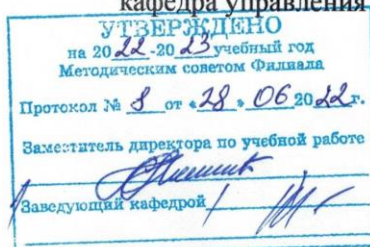 кафедра управления
УТВЕРЖДЕНО
на 2022-2023 учебный год
Методическим советом Филиала
Протокол № 8 от «28» 06 2022г.
Заместитель директора по учебной работе
Заведующий кафедрой